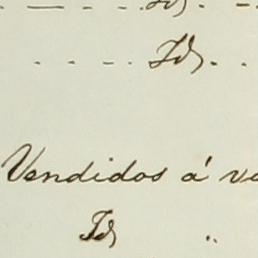 Id.
Id.
Vendidos á va
Id "